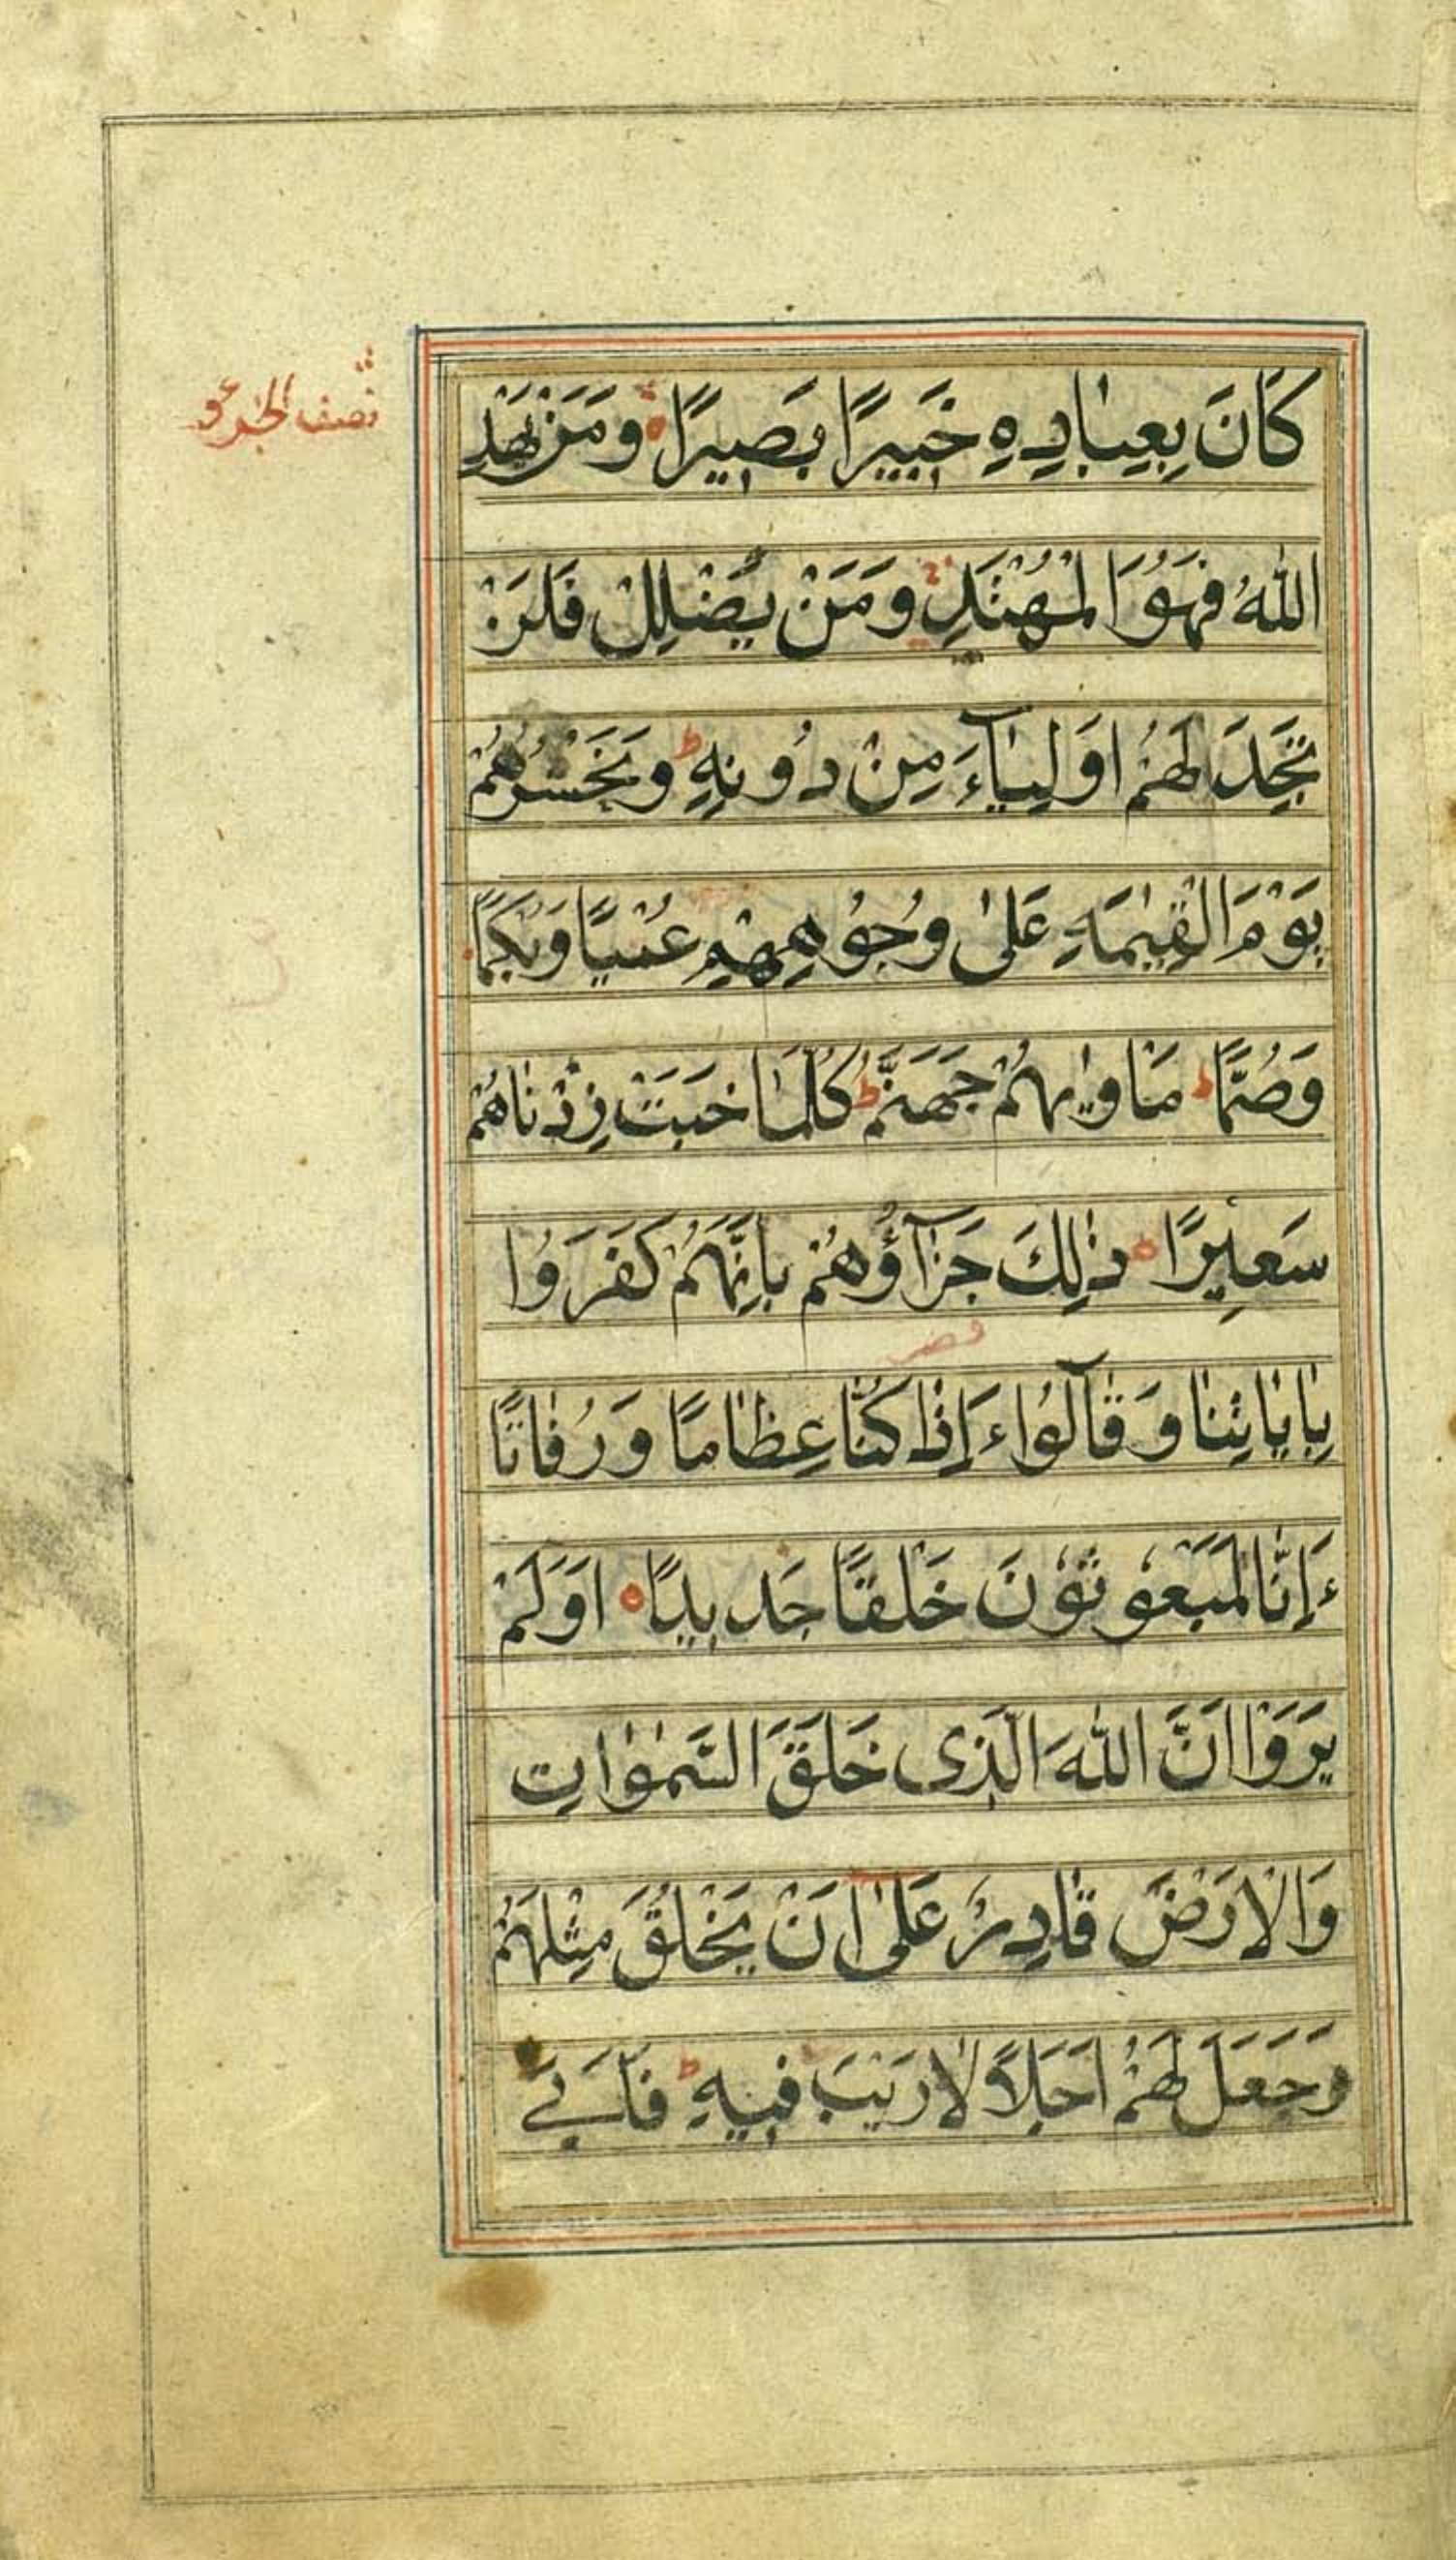 نصف الجزء
كَانَ بِعِبَادِهٖ خَبِيرًا بَصِيرًا وَمَنْ يَهْدِ
اللّٰهُ فَهُوَ الْمُهْتَدِ وَمَنْ يُضْلِلْ فَلَنْ
تَجِدَ لَهُمْ اَوْلِيَآءَ مِنْ دُونِهٖ ط وَنَحْشُرُهُمْ
يَوْمَ الْقِيٰمَةِ عَلٰى وُجُوهِهِمْ عُمْيًا وَبُكْمًا
وَصُمًّا ط مَاْوٰيهُمْ جَهَنَّمُ ط كُلَّمَا خَبَتْ زِدْنَاهُمْ
سَعِيرًا ذٰلِكَ جَزَآؤُهُمْ بِاَنَّهُمْ كَفَرُوا
بِاٰيَاتِنَا وَقَالُوا ءَاِذَا كُنَّا عِظَامًا وَرُفَاتًا
ءَاِنَّا لَمَبْعُوثُونَ خَلْقًا جَدِيدًا اَوَلَمْ
يَرَوْا اَنَّ اللّٰهَ الَّذِى خَلَقَ السَّمٰوَاتِ
وَالْاَرْضَ قَادِرٌ عَلٰى اَنْ يَخْلُقَ مِثْلَهُمْ
وَجَعَلَ لَهُمْ اَجَلًا لَا رَيْبَ فِيهِ ط فَاَبَى